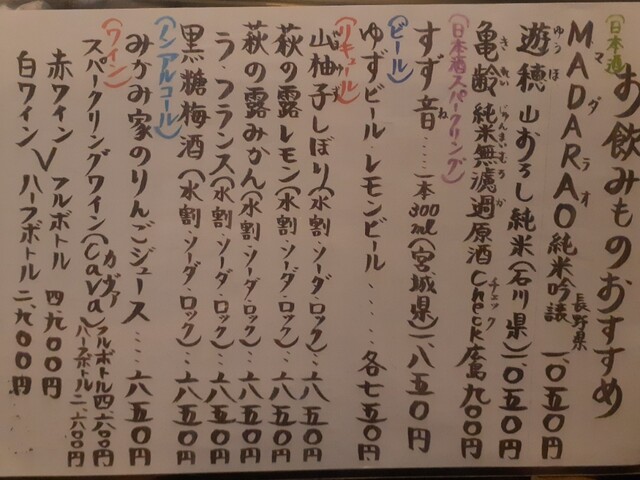 お飲みものおすすめ
日本酒
MADARAO 純米吟醸 長野県 一、〇五〇円
マダラオ
遊穂 山おろし純米(石川県)一、〇五〇円
ゆうほ
亀齢 純米無濾過原酒 Check 広島 九〇〇円
きれい じゅんまいむろか チェック
(日本酒スパークリング)
すず音……一本300ml(宮城県)一、八五〇円
ね
(ビール)
ゆずビール・レモンビール……各七五〇円
(リキュール)
山柚子しぼり(水割・ソーダ・ロック)…六五〇円
ゆず
萩の露レモン(水割・ソーダ・ロック)…六五〇円
萩の露みかん(水割・ソーダ・ロック)…六五〇円
ラ・フランス(水割・ソーダ・ロック)…六五〇円
黒糖梅酒(水割・ソーダ・ロック)…六五〇円
(ノンアルコール)
みかみ家のりんごジュース……六五〇円
(ワイン)
スパークリングワイン(Cava)フルボトル四、六〇〇円
カヴァ ハーフボトル二、六〇〇円
赤ワイン フルボトル 四、九〇〇円
白ワイン ハーフボトル 二、九〇〇円